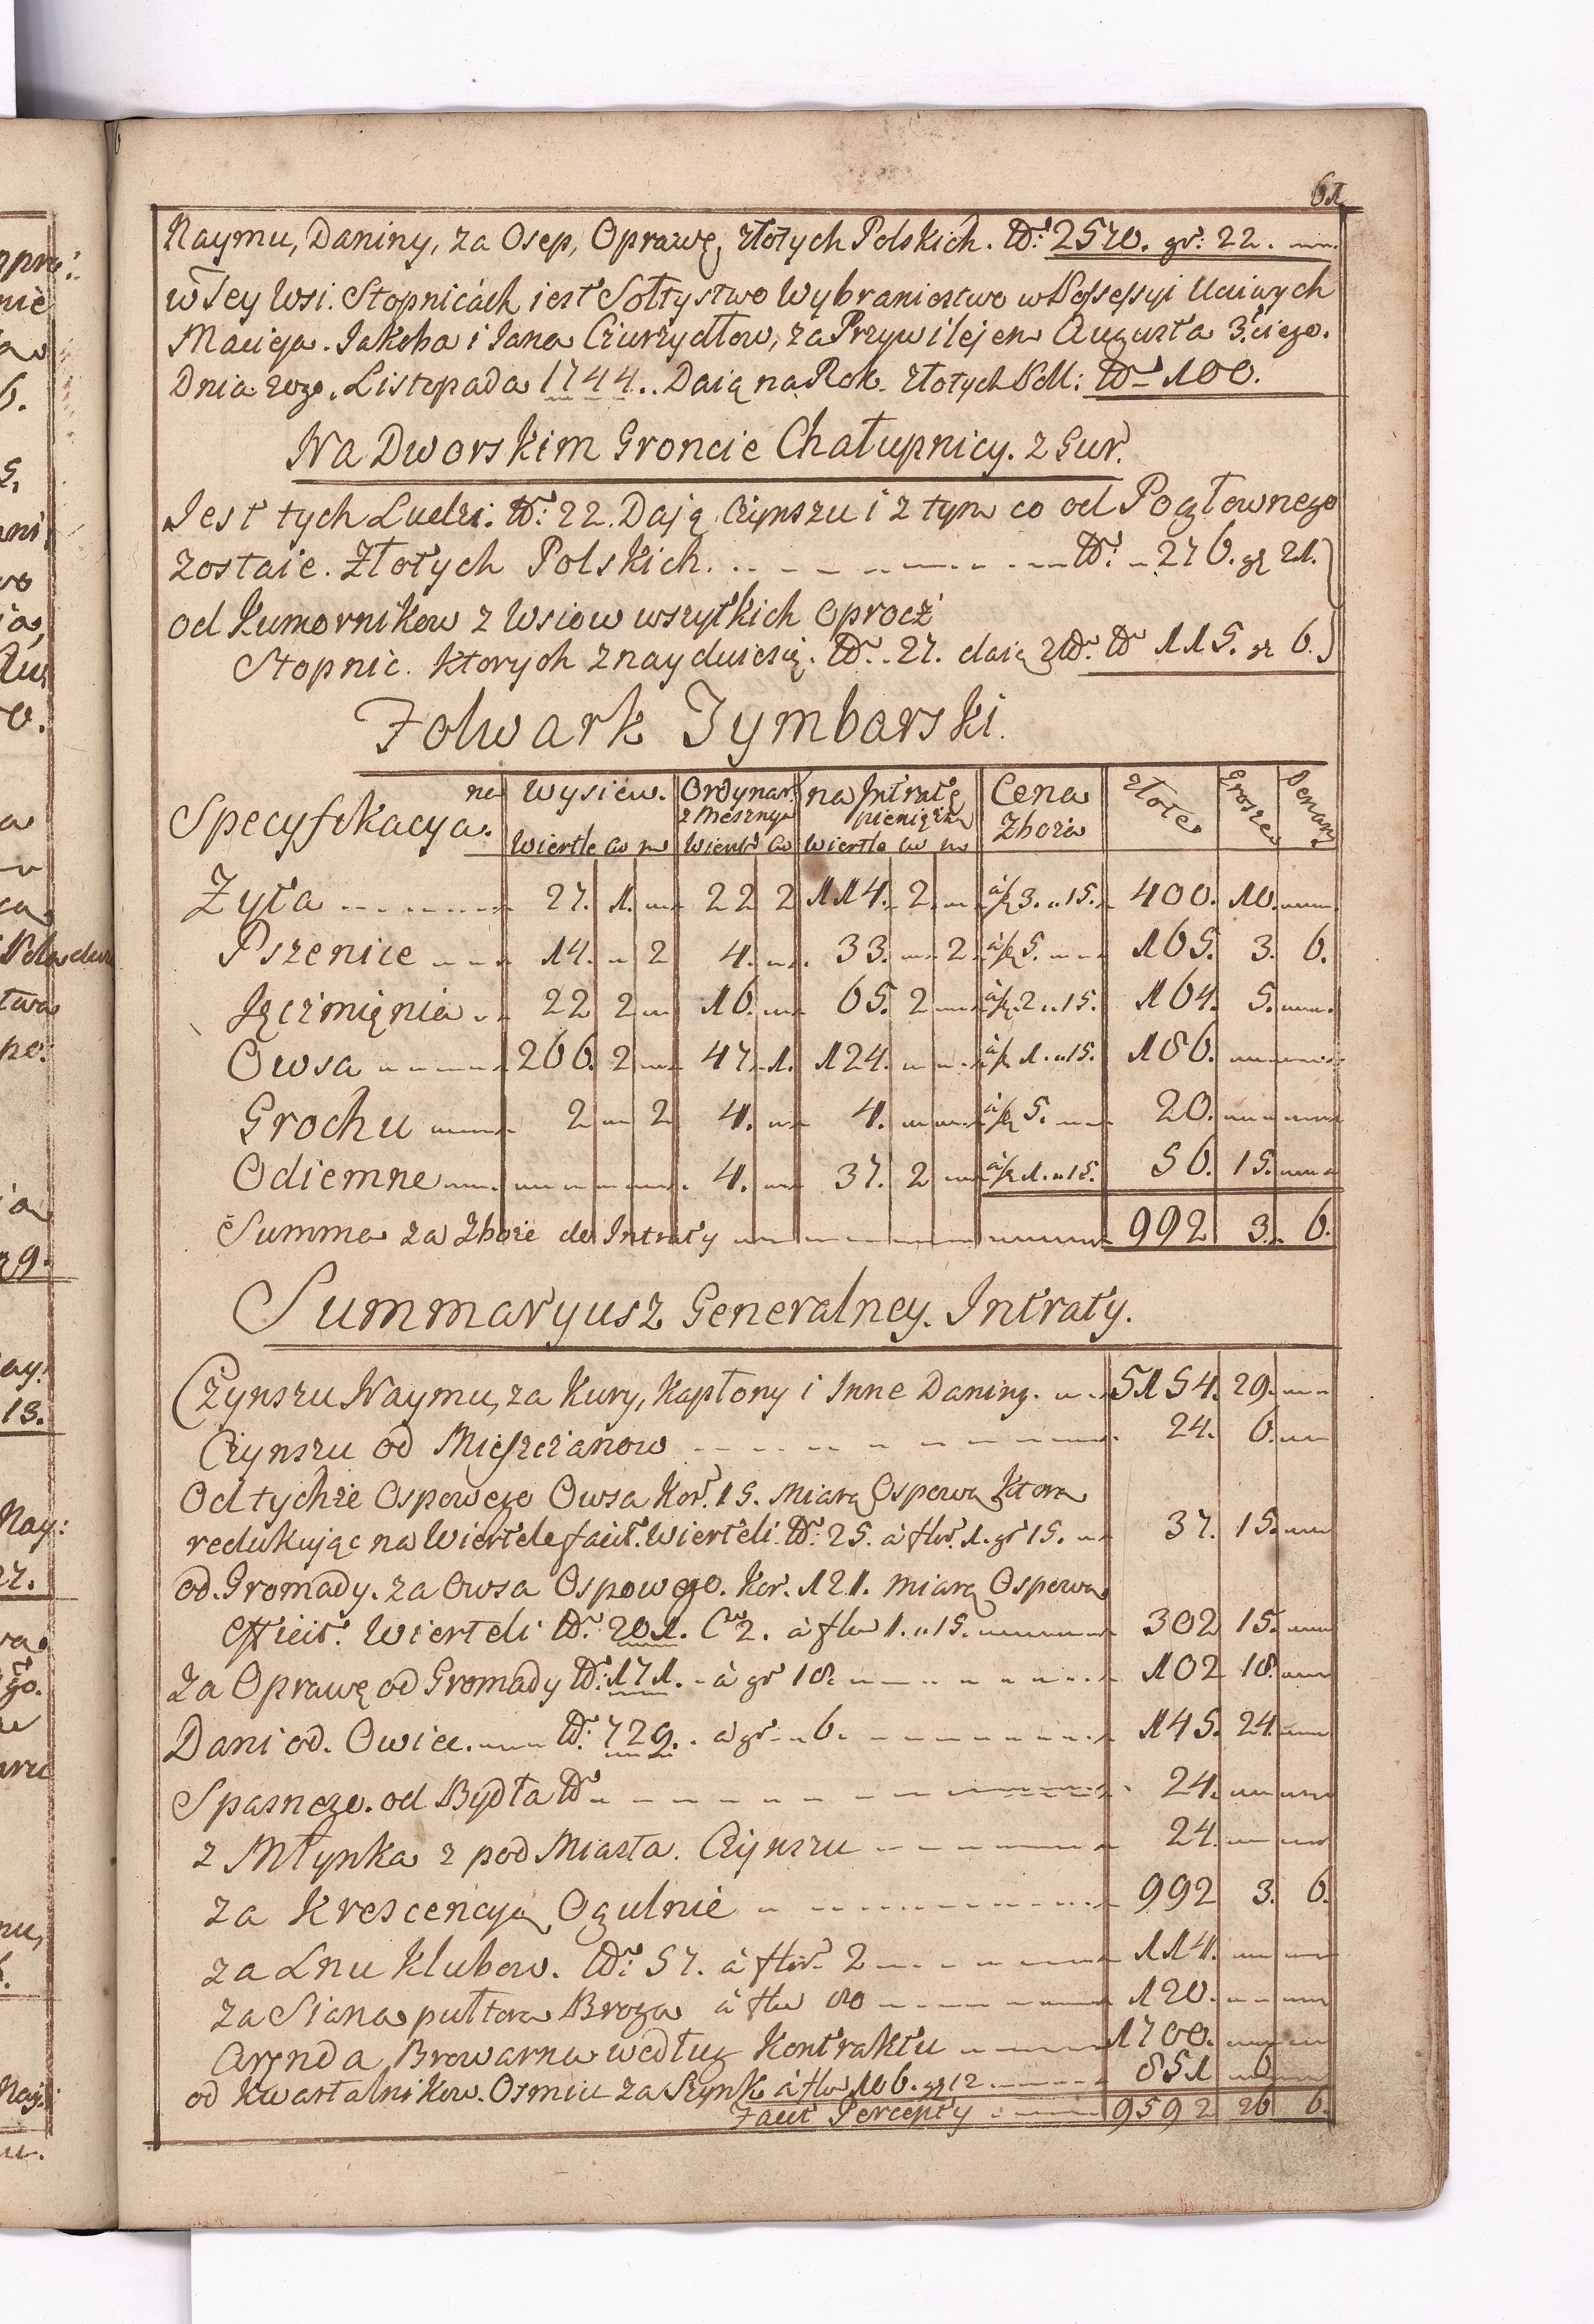 61
Naymu, Daniny, za Osep, Oprawę, złotych Polskich. No: 2570. gr: 22.
w Tey Wsi. Stopnicach iest Sołtystwo Wybraniectwo w Possessyi Uciwych
Macieja. Jakoba i Jana Ciurzydłow, za Przywilejem Augusta 3ciego.
Dnia 20go. Listopada 1744.. Daią na Rok. złotych Poll: No 100.
Na Dworskim Groncie Chałupnicy. z Gur.
Jest tych Ludzi. No: 22. Dają Czynszu i z tym co od Pogłownego
zostaie. Złotych Polskich. No: 276. gr 21.
od Kumornikow z Wsiow wszytkich oprocz
Stopnic. Ktorych znayduie się. No.. 27. daią zł: No 115. gr 6.
Folwark Tymbarski.
Specyfikacya. na Wysiew. Ordynar. z Mesznym na Intratę pieniężną Cena Zboża złote Grosze Denary
Wiertle ćw m Wiertl ćw Wiertle ćw m
Żyta 27. 1. 22 2 114. 2. à fl 3. 15. 400. 10.
Pszenice 14. 2 4. 33. 2 à fl 5. 165. 3. 6.
Jęczmięnia 22 2 16. 65. 2 à fl 2 15. 164. 5.
Owsa 266. 2 47. 1. 124. à fl 1. 15. 186.
Grochu 2 2 4. 4. à fl 5. 20.
Odiemne 4. 37. 2 à fl 1. 15. 56. 15.
Summa za Zboże do Intraty 992 3. 6.
Summaryusz Generalney. Intraty.
Czynszu Naymu, za Kury, Kapłony i Inne Daniny. 5154. 29.
Czynszu od Mieszczanow 24. 6.
Od tychże Ospowego Owsa Kor. 15. Miarą Ospową Ktora
redukując na Wiertele facit. Wierteli. No: 25. à flor. 1. gr 15. 37. 15.
od. Gromady. za Owsa Ospowego. Kor. 121. miarą Ospową
efficit. Wierteli No: 201. Ćw 2. à flor 1. 15. 302 15.
Za Oprawę od Gromady No: 171. à gr 18. 102 18.
Dani od. Owiec. No: 729. à gr 6. 145. 24.
Spasnego. od Bydła No 24.
z Młynka z pod Miasta. Czynszu 24.
za Krescencyą Ogulnie 992 3. 6.
za Lnu Klubow. No: 57. à flor 2 114.
za Siana pułtora Broga à flor 80 120.
Arenda Browarna według Kontraktu 1700.
od Kwartalnikow. Osmiu za Szynk à flor 106. gr 12 851 6
Facit Percepty 9592 26 6.